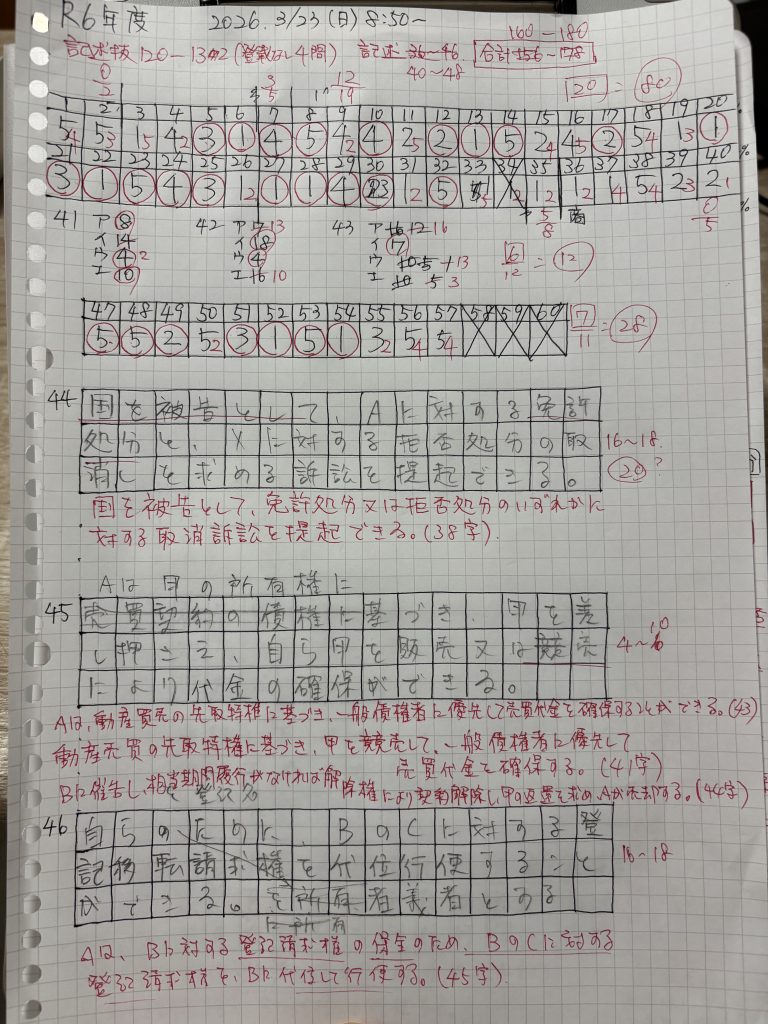 R6年度 2026.3/23(日)8:50~
160-180
記述抜120-132(登載なし4問) 記述 36~46 合計156~178
40~48
0/2 3/5 12/19 20=80
1 2 3 4 5 6 7 8 9 10 11 12 13 14 15 16 17 18 19 20
54 53 15 42 3 1 4 5 42 4 25 2 1 5 24 45 2 54 13 1
21 22 23 24 25 26 27 28 29 30 31 32 33 34 35 36 37 38 39 40
3 1 5 4 3 12 1 1 4 12 5 12 12 4 54 23 21
5/8 商 0/5
41 ア 8 42 ア 17 13 43 ア 16 12 16
イ 14 イ 18 イ 17
ウ 4 2 ウ 4 ウ 10 5 13
エ 10 エ 16 10 エ 10 5 3
6/12=12
47 48 49 50 51 52 53 54 55 56 57 58 59 60
5 5 2 52 3 1 5 1 32 54 54
7/11=28
44 国を被告として、Aに対する免許
処分と、Xに対する拒否処分の取
消しを求める訴訟を提起できる。
16~18
20?
国を被告として、免許処分又は拒否処分のいずれかに
対する取消訴訟を提起できる。(38字)
Aは甲の所有権に
45 売買契約の債権に基づき、甲を差
し押さえ、自ら甲を販売又は競売
により代金の確保ができる。
10
4~6
Aは、動産買売の先取特権に基づき、一般債権者に優先して売買代金を確保することができる。(43)
動産売買の先取特権に基づき、甲を競売して、一般債権者に優先して
売買代金を確保する。(41字)
Bに催告し、相当期間履行がなければ解除権により契約解除し、甲の返還を求め、Aが売却する。(44字)
と登記名
46 自らのために、BのCに対する登
記移転請求権を代位行使すること
ができる。を所有者義者とする
に所有
16~18
Aは、Bに対する登記請求権の保全のため、BのCに対する
登記請求権を、Bに代位して行使する。(45字)